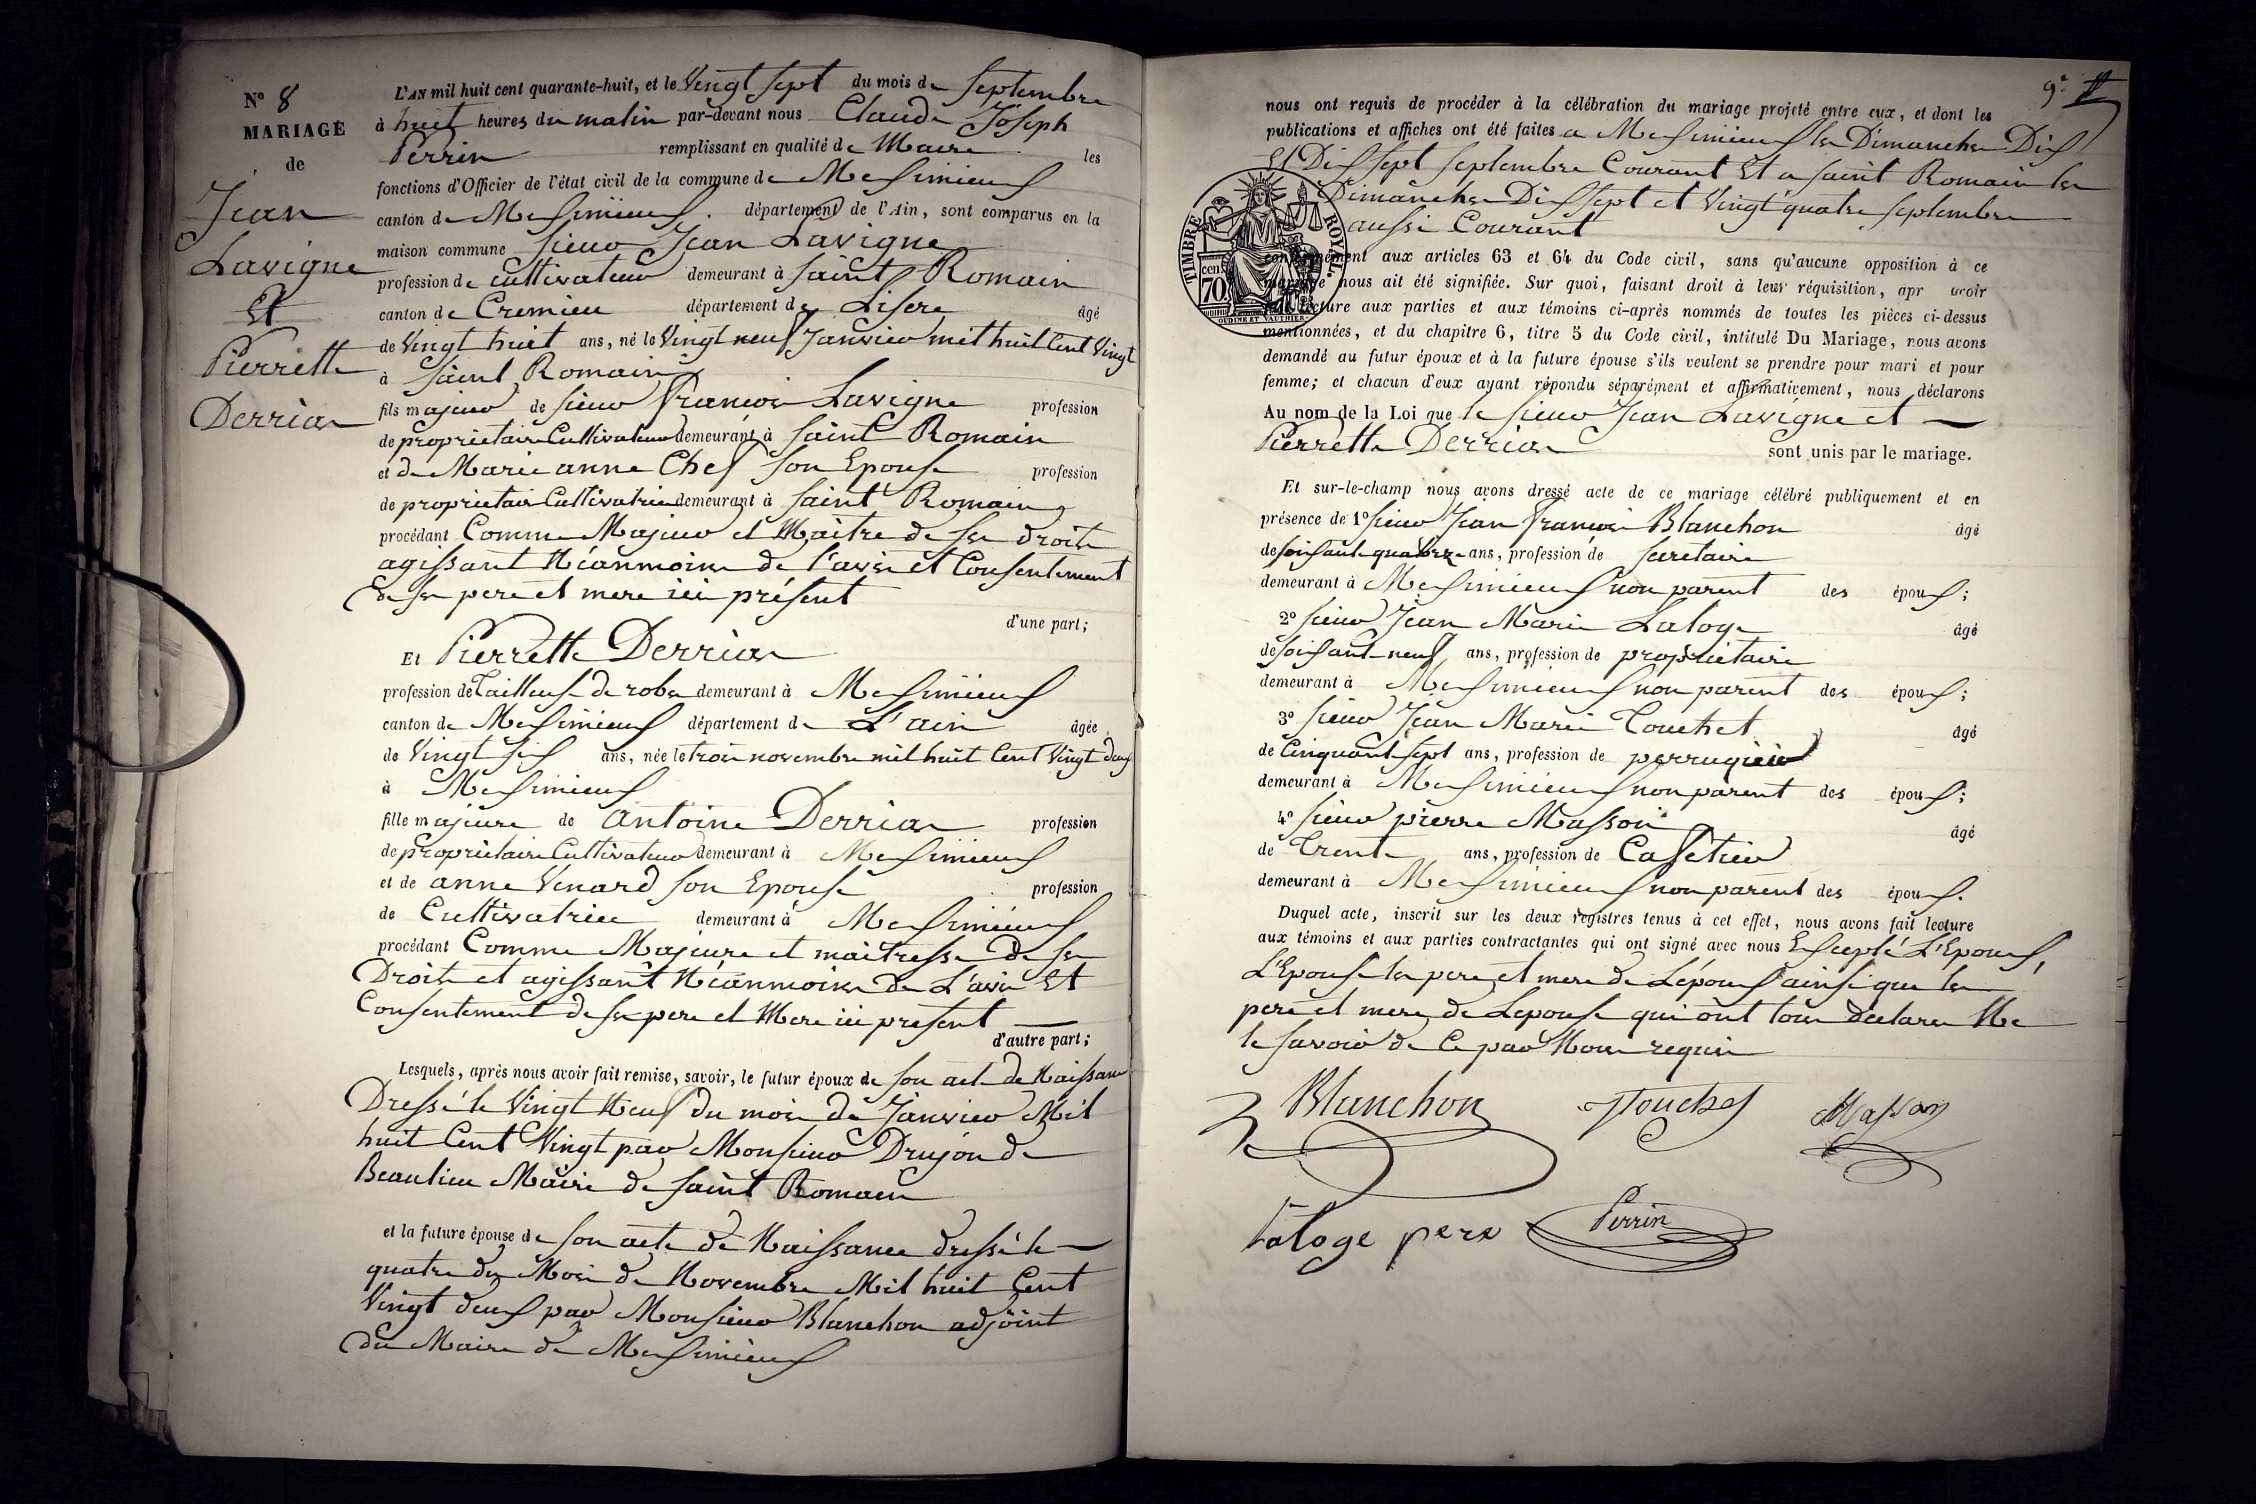 N° 8
MARIAGE
de
Jean
Lavigne
Et
Pierrette
Derrias
L'AN mil huit cent quarante-huit, et le Vingt sept du mois de septembre
à huit heures du matin par-devant nous Claude Joseph
Perrin remplissant en qualité de Maire les
fonctions d'Officier de l'état civil de la commune de Messimieux
canton de Messimieux département de l'Ain, sont comparus en la
maison commune sieur Jean Lavigne
profession de cultivateur demeurant à saint Romain
canton de Cremieu département de Lisere âgé
de Vingt huit ans, né le Vingt neuf Janvier mil huit Cent Vingt
à saint Romain
fils majeur de sieur françois Lavigne profession
de propriétaire Cultivateur demeurant à saint Romain
et de Marie anne Chef son Epouse profession
de propriétaire Cultivatrice demeurant à saint Romain
procédant Comme Majeur et Maitre de ses droits
agissant Néanmoins de l'avis et Consentement
de ses pere et mere ici présent
d'une part;
Et Pierrette Derrias
profession de Tailleuse de robes demeurant à Messimieux
canton de Messimieux département de L'ain âgée
de Vingt six ans, née le trois novembre mil huit Cent Vingt deux
à Messimieux
fille majeure de antoine Derrias profession
de propriétaire Cultivateur demeurant à Messimieux
et de anne Venard son Epouse profession
de Cultivatrice demeurant à Messimieux
procédant Comme Majeure et maitresse de ses
Droits et agissant Néanmoins de L'avis Et
Consentement de ses pere et Mere ici présent
d'autre part;
Lesquels, après nous avoir fait remise, savoir, le futur époux de son acte de Naissance
Dressé le Vingt Neuf du mois de Janvier Mil
huit Cent Vingt par Monsieur Drujon de
Beaulieu Maire de saint Romain
et la future épouse de son acte de Naissance dressé le
quatre du Mois de Novembre Mil huit Cent
Vingt deux par Monsieur Blanchon adjoint
du Maire de Messimieux
9e
nous ont requis de procéder à la célébration du mariage projeté entre eux, et dont les
publications et affiches ont été faites a Messimieux les Dimanches Dix
Et Dix sept septembre Courant Et a saint Romain les
Dimanches Dix sept et Vingt quatre septembre
aussi Courant
TIMBRE ROYAL.
cen. 70
OUDINE ET VAUTHIER.
conformément aux articles 63 et 64 du Code civil, sans qu'aucune opposition à ce
mariage nous ait été signifiée. Sur quoi, faisant droit à leur réquisition, apr avoir
fait lecture aux parties et aux témoins ci-après nommés de toutes les pièces ci-dessus
mentionnées, et du chapitre 6, titre 5 du Code civil, intitulé Du Mariage, nous avons
demandé au futur époux et à la future épouse s'ils veulent se prendre pour mari et pour
femme; et chacun d'eux ayant répondu séparément et affirmativement, nous déclarons
Au nom de la Loi que le sieur Jean Lavigne et
Pierrette Derrias sont unis par le mariage.
Et sur-le-champ nous avons dressé acte de ce mariage célébré publiquement et en
présence de 1° sieur Jean françois Blanchon âgé
de soixante quatorze ans, profession de secretaire
demeurant à Messimieux non parent des époux;
2° sieur Jean Marie Laloge âgé
de soixante neuf ans, profession de propriétaire
demeurant à Messimieux non parent des époux;
3° sieur Jean Marie Touchet âgé
de Cinquante sept ans, profession de perruquier
demeurant à Messimieux non parent des époux;
4° sieur pierre Masson âgé
de Trente ans, profession de Cafetier
demeurant à Messimieux non parent des époux.
Duquel acte, inscrit sur les deux registres tenus à cet effet, nous avons fait lecture
aux témoins et aux parties contractantes qui ont signé avec nous Excepté L'Epoux,
L'Epouse les pere et mere de L'époux ainsi que les
pere et mere de Lepouse qui ont tous déclarer Ne
le savoir de Ce par Nous requis
Blanchon Touchet Masson
Laloge pere Perrin